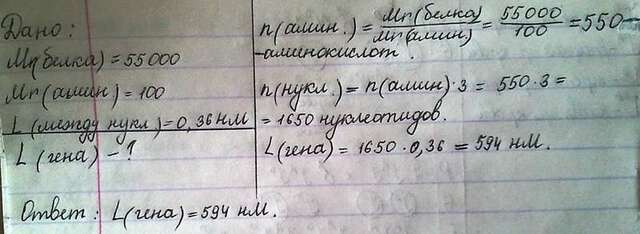 Дано:
Mr(белка)=55000
Mr(амин)=100
L(между нукл.)=0,36 нм
L(гена)-?
n(амин.)=Mr(белка)/Mr(амин)=55000/100=550-
-аминокислот.
n(нукл.)=n(амин)·3=550·3=
=1650 нуклеотидов.
L(гена)=1650·0,36=594 нм.
Ответ: L(гена)=594 нм.